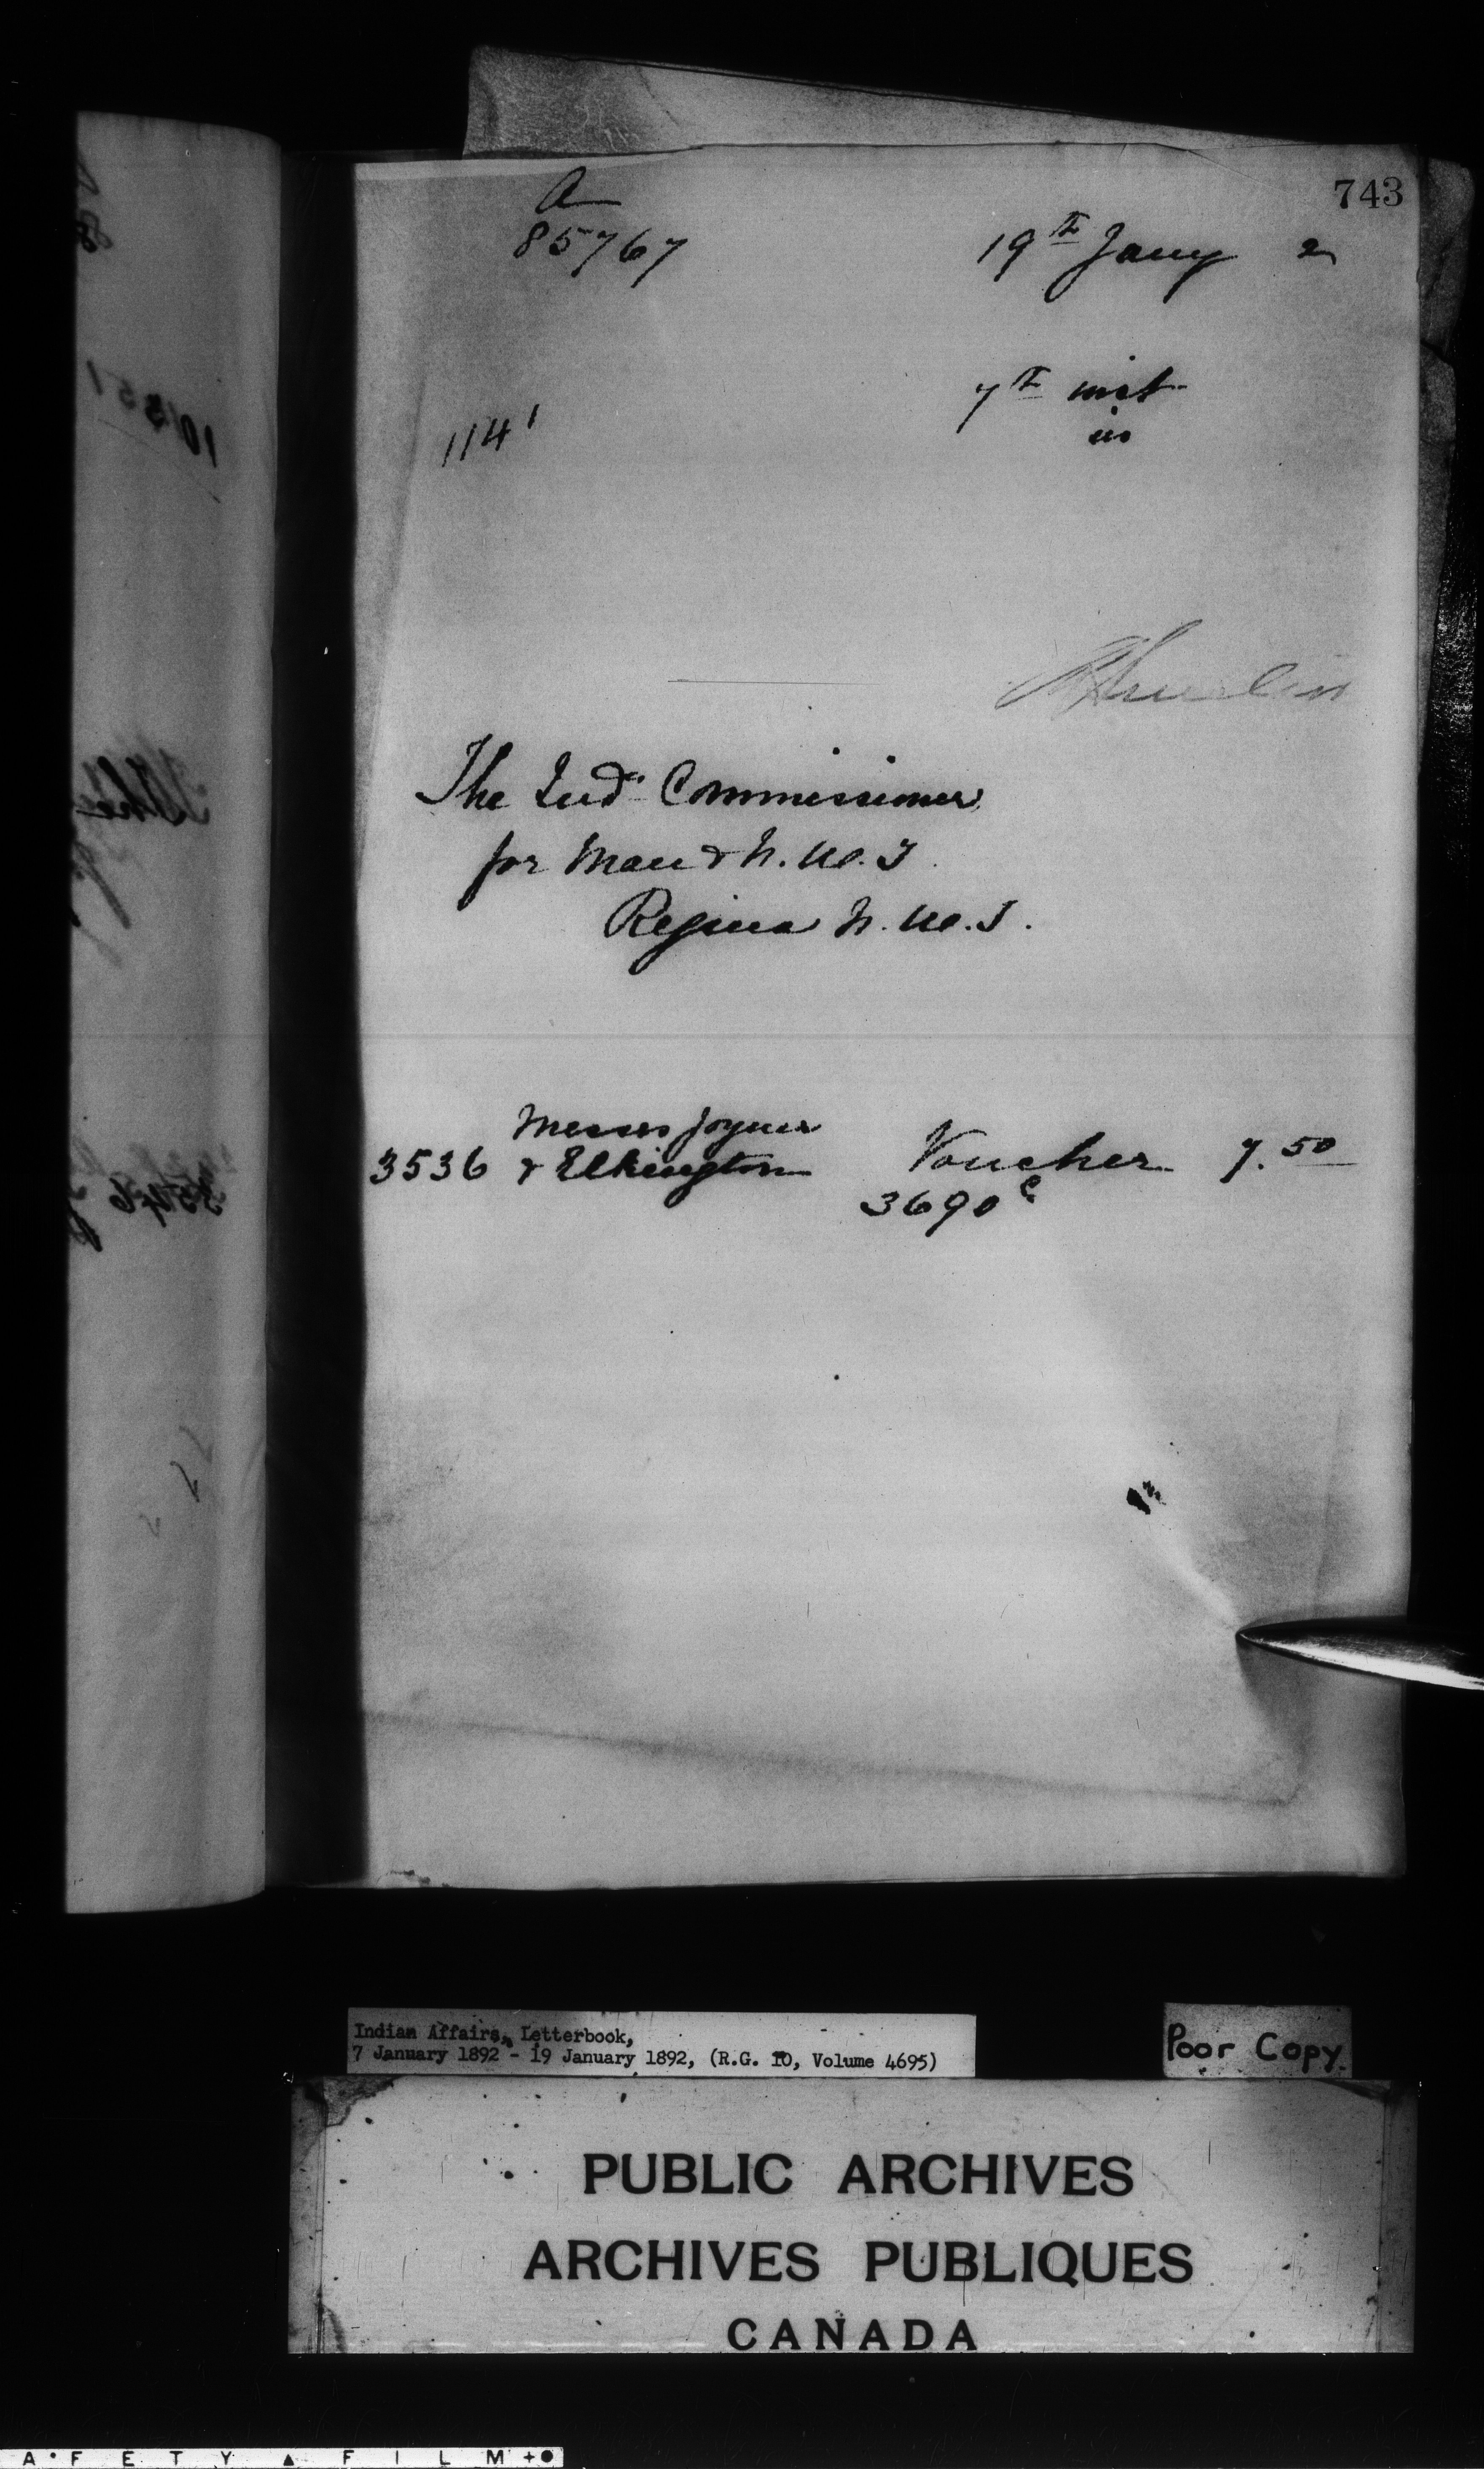 743
A
85767
19th Jany 2
7th inst
in
1141
The Ind. Commissioner
for Man & N.W.T.
Regina N.W.T.
Messrs Joyner
3536 & Elkington Voucher 7.50
3690 c
Indian Affairs, Letterbook,
7 January 1892 - 19 January 1892, (R.G. 10, Volume 4695)
Poor Copy.
PUBLIC ARCHIVES
ARCHIVES PUBLIQUES
CANADA
AFETY ▲ FILM